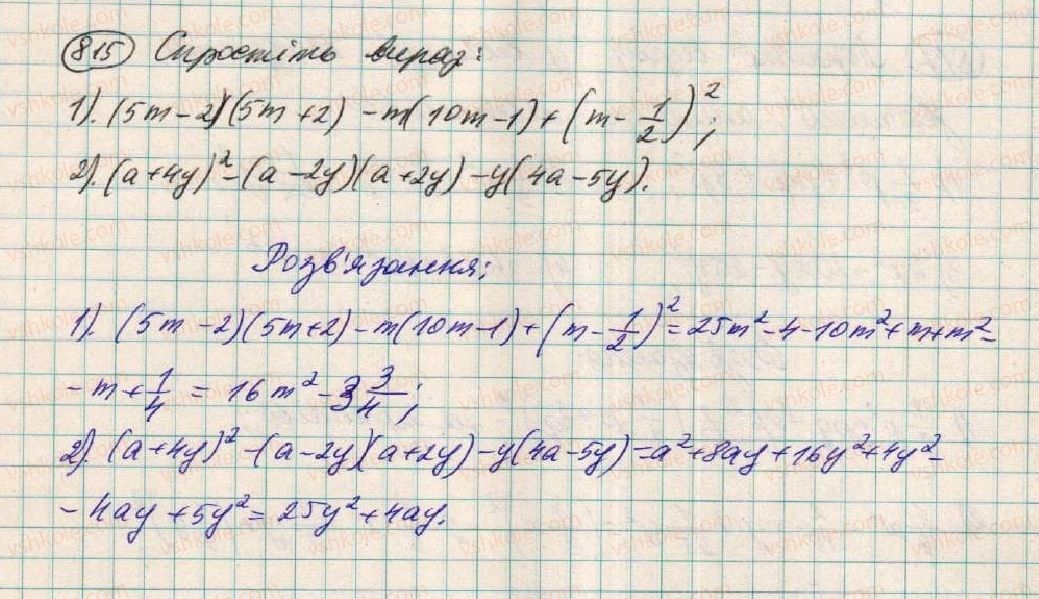 815 Спростіть вираз:
1). (5m-2)(5m+2)-m(10m-1)+(m-1/2)²;
2). (a+4y)²-(a-2y)(a+2y)-y(4a-5y).
Розв'язання:
1). (5m-2)(5m+2)-m(10m-1)+(m-1/2)²=25m²-4-10m²+m+m²-
-m+1/4=16m²-3 3/4;
2). (a+4y)²-(a-2y)(a+2y)-y(4a-5y)=a²+8ay+16y²+4y²-
-4ay+5y²=25y²+4ay.